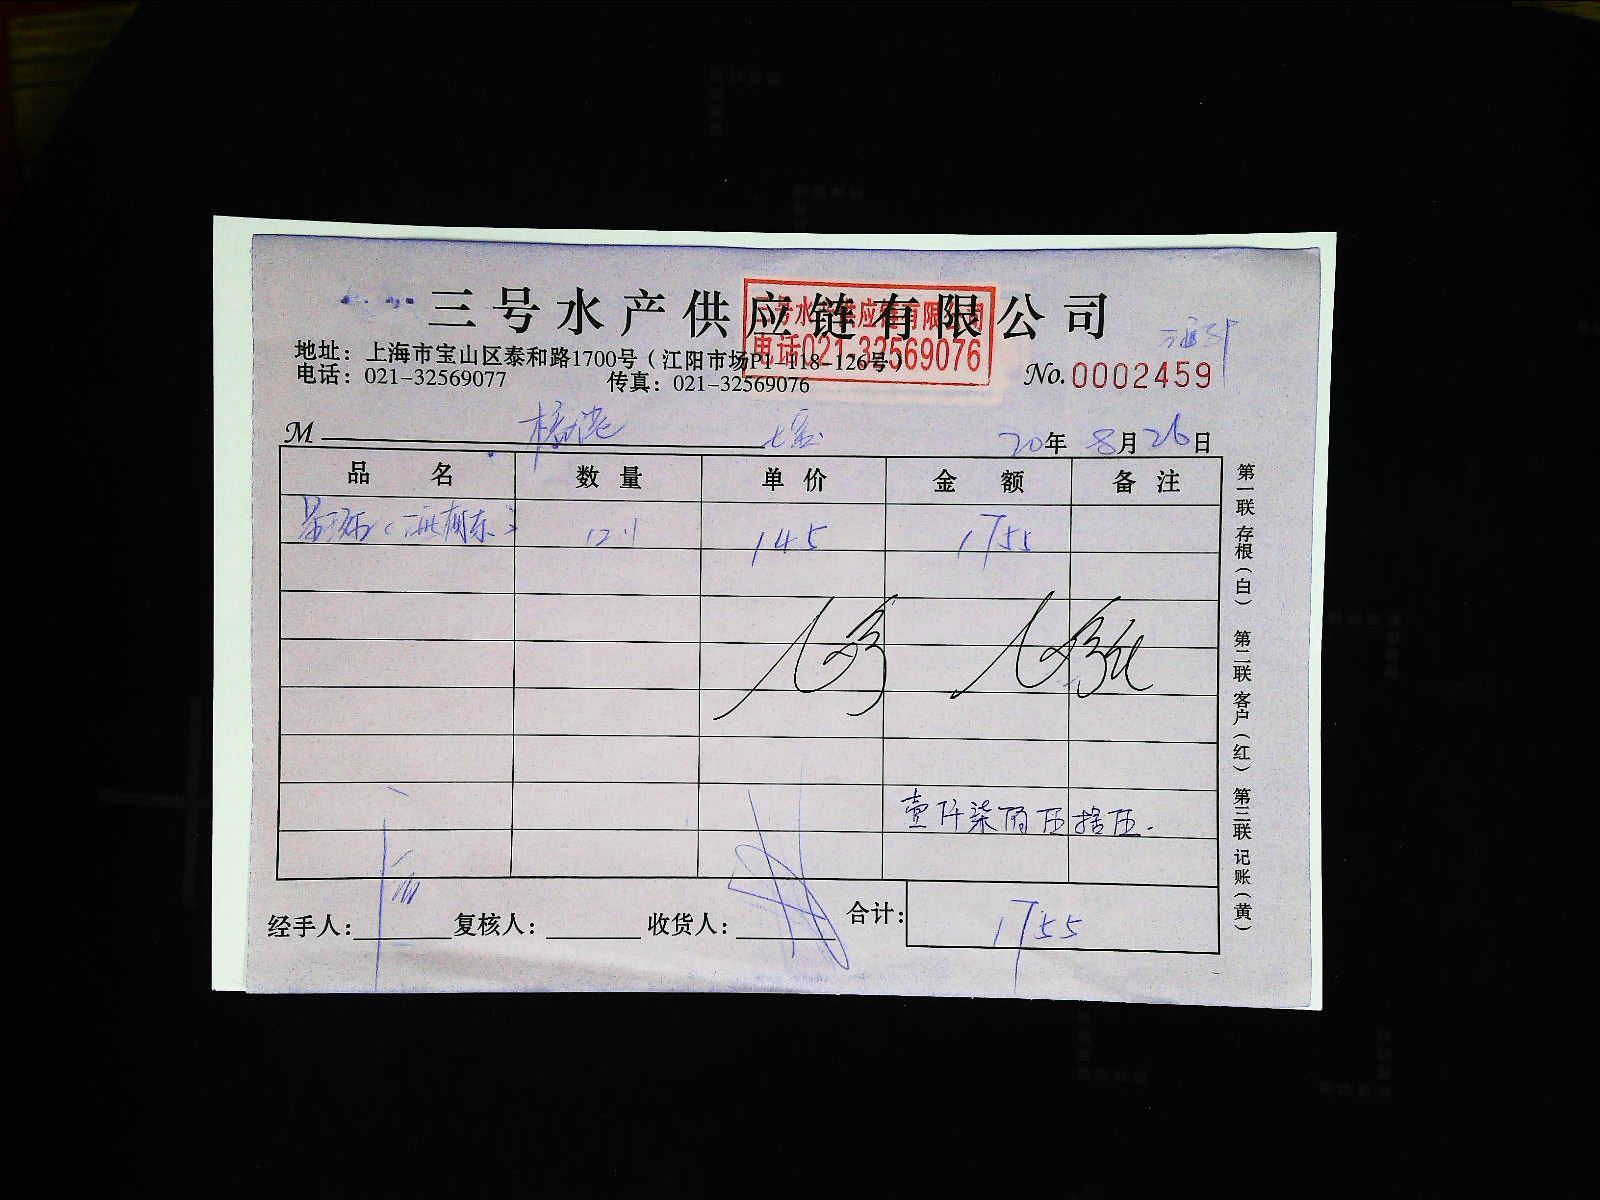 三号水产供应链有限公司
三号水产供应链有限公司
电话021-32569076
地址：上海市宝山区泰和路1700号（江阳市场P1-118-126号）
电话：021-32569077 传真：021-32569076
No.0002459
M 七宝 20年 8月26日
品名 数量 单价 金额 备注
12.1 145 1755
壹仟柒佰伍拾伍.
经手人： 复核人： 收货人： 合计： 1755
第一联 存根（白） 第二联 客户（红） 第三联 记账（黄）